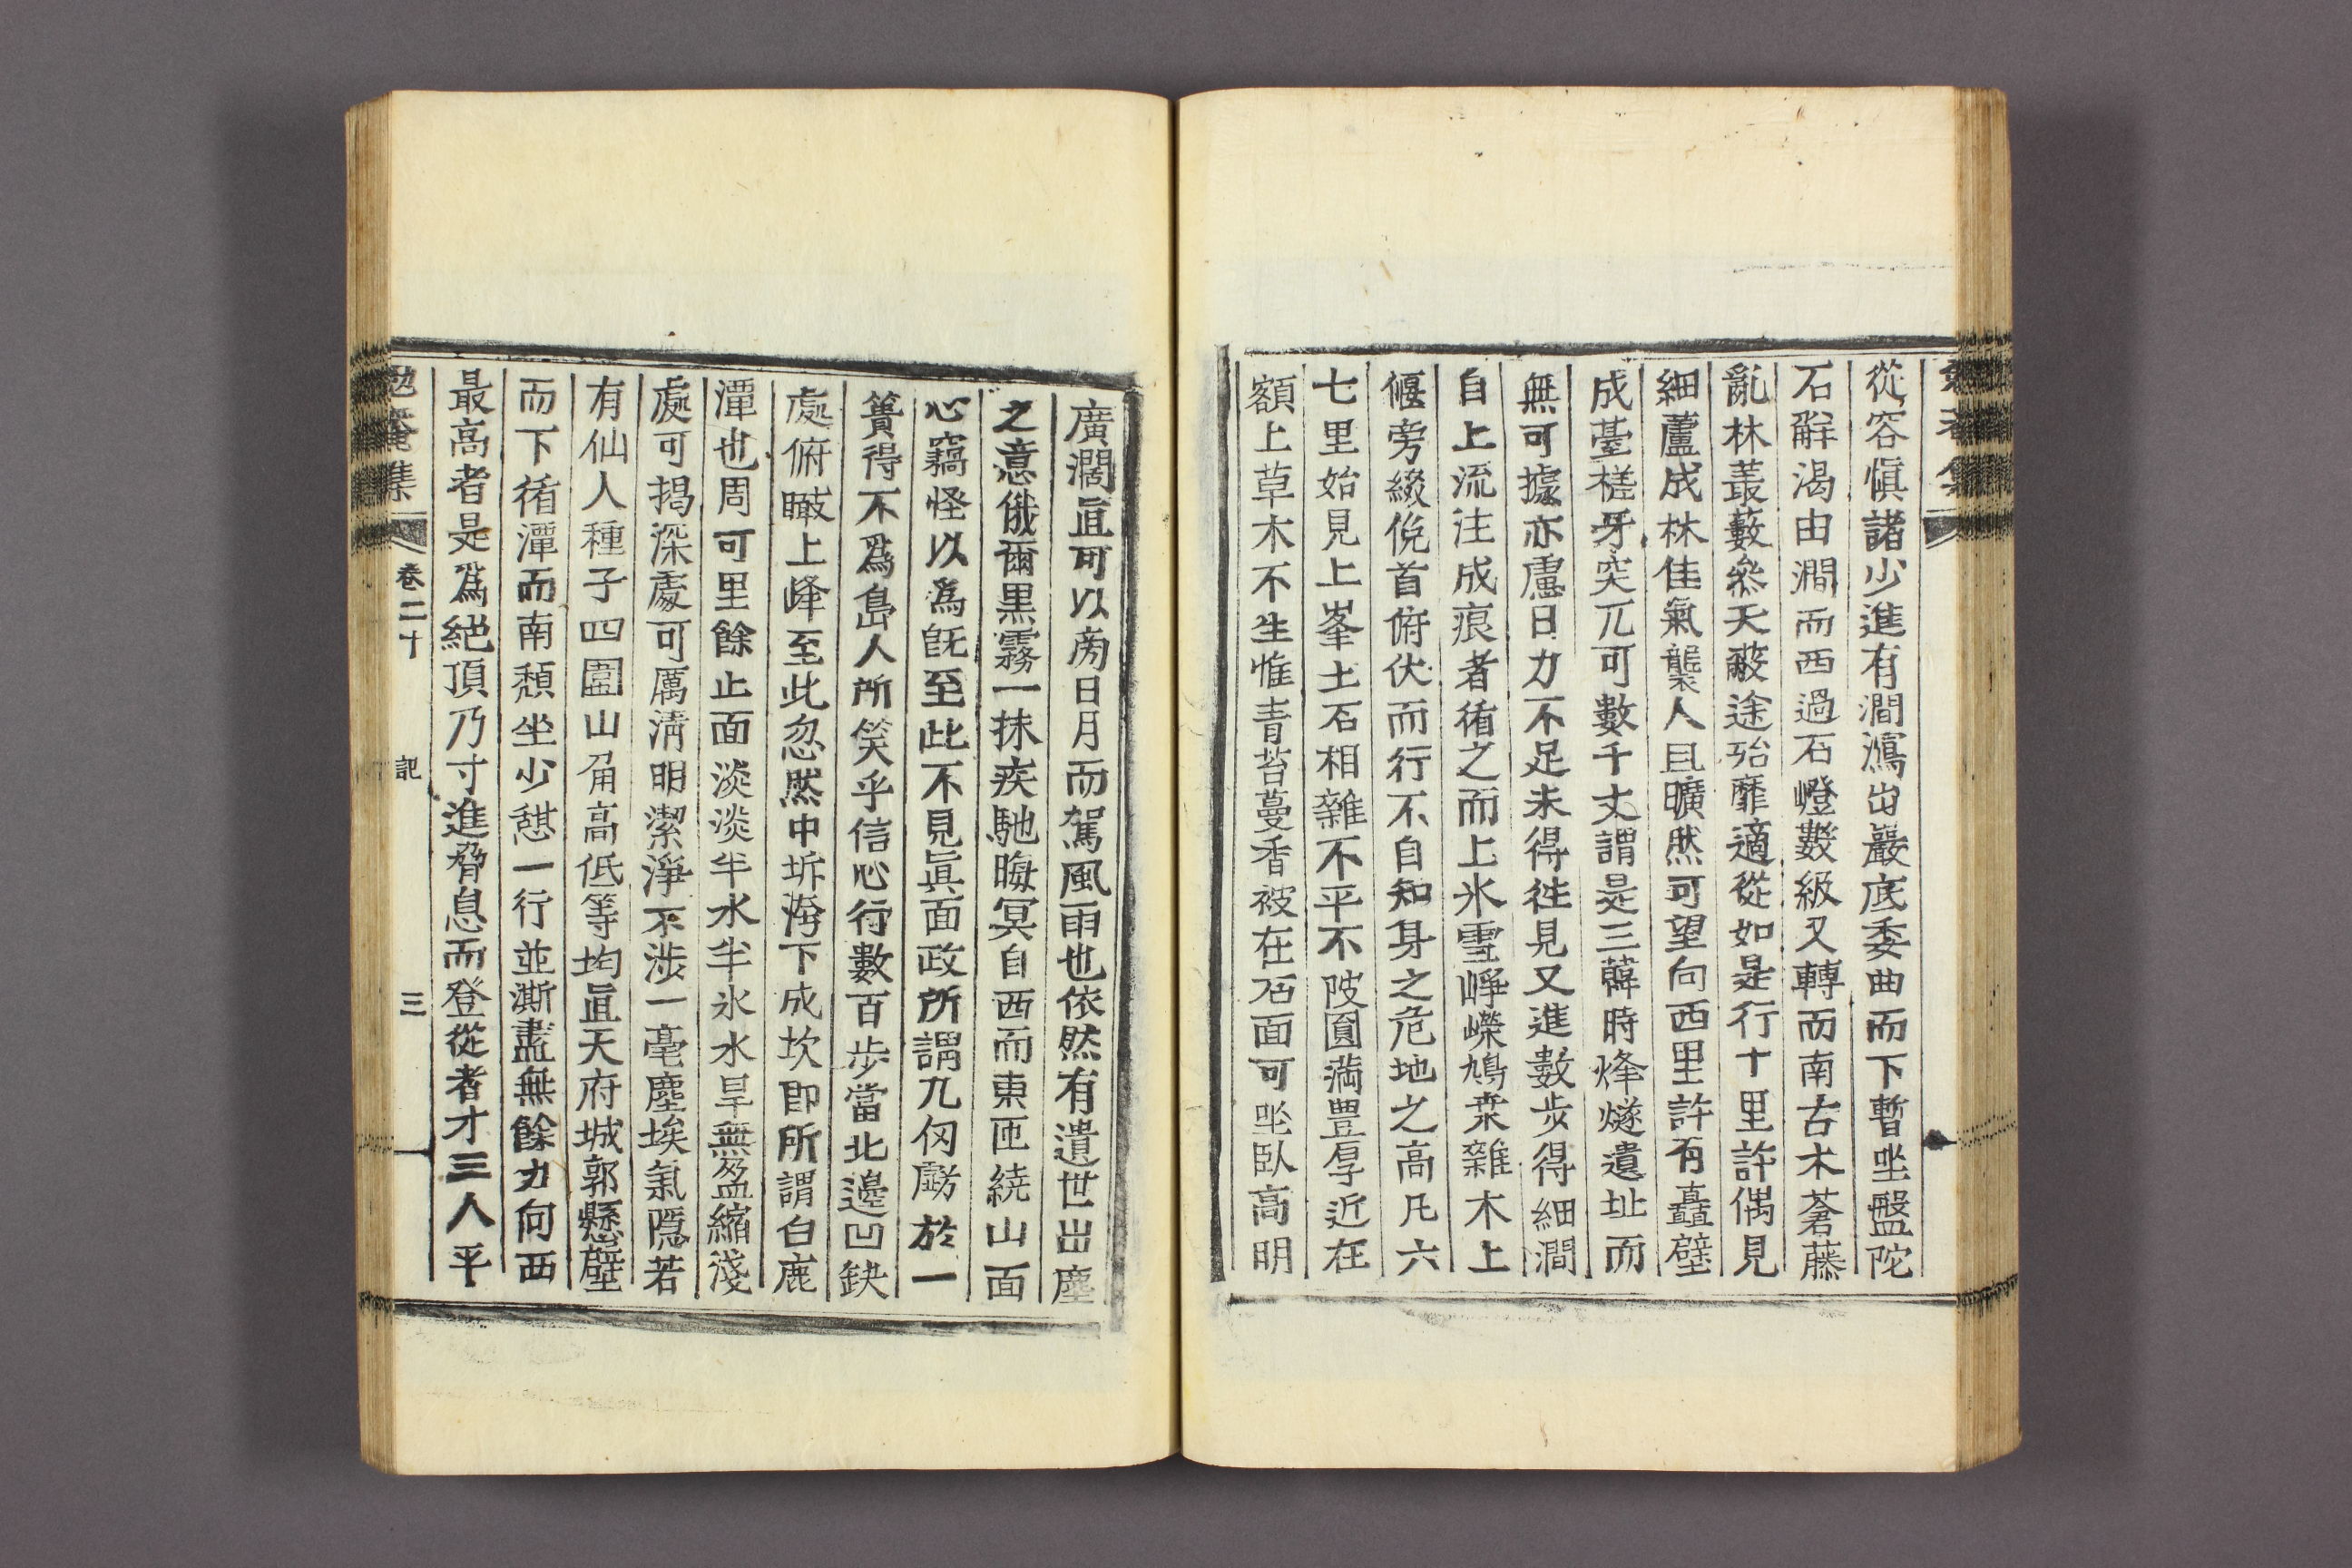 從容愼諸少進有澗瀉出巖底委曲而下暫坐盤陀
石觧渴由澗而西過石嶝數級又轉而南古木蒼藤
亂林叢藪叅天蔽途殆靡適從如是行十里許偶見
細蘆成林佳氣襲人且曠然可望向西里許有矗壁
成䑓槎牙突兀可數千丈謂是三韓時烽燧遺址而
無可據亦慮日力不足未得徃見又進數步得細澗
自上流注成痕者循之而上氷雪崢嶸鳩桒雜木上
偃旁綴俛首俯伏而行不自知身之危地之高凡六
七里始見上峯土石相雜不平不陂圓滿豊厚近在
額上草木不生惟青苔蔓香被在石面可坐臥高明
廣濶眞可以旁日月而駕風雨也依然有遺世出塵
之意俄爾黒霧一抹疾馳晦冥自西而東匝繞山面
心竊怪以爲旣至此不見眞面政所謂九仞虧於一
簣得不爲島人所笑乎信心行數百步當北邊凹鈌
處俯瞰上峰至此忽然中坼洿下成坎即所謂白鹿
潭也周可里餘止面淡淡半水半氷水旱無盈縮淺
處可揭深處可厲淸明潔淨不涉一毫塵埃氣隱若
有仙人種子四圍山角高低等均眞天府城郭懸壁
而下循潭而南頹坐少憩一行並澌盡無餘力向西
最高者是爲絕頂乃寸進脅息而登從者才三人平
勉菴集 卷二十 記 三